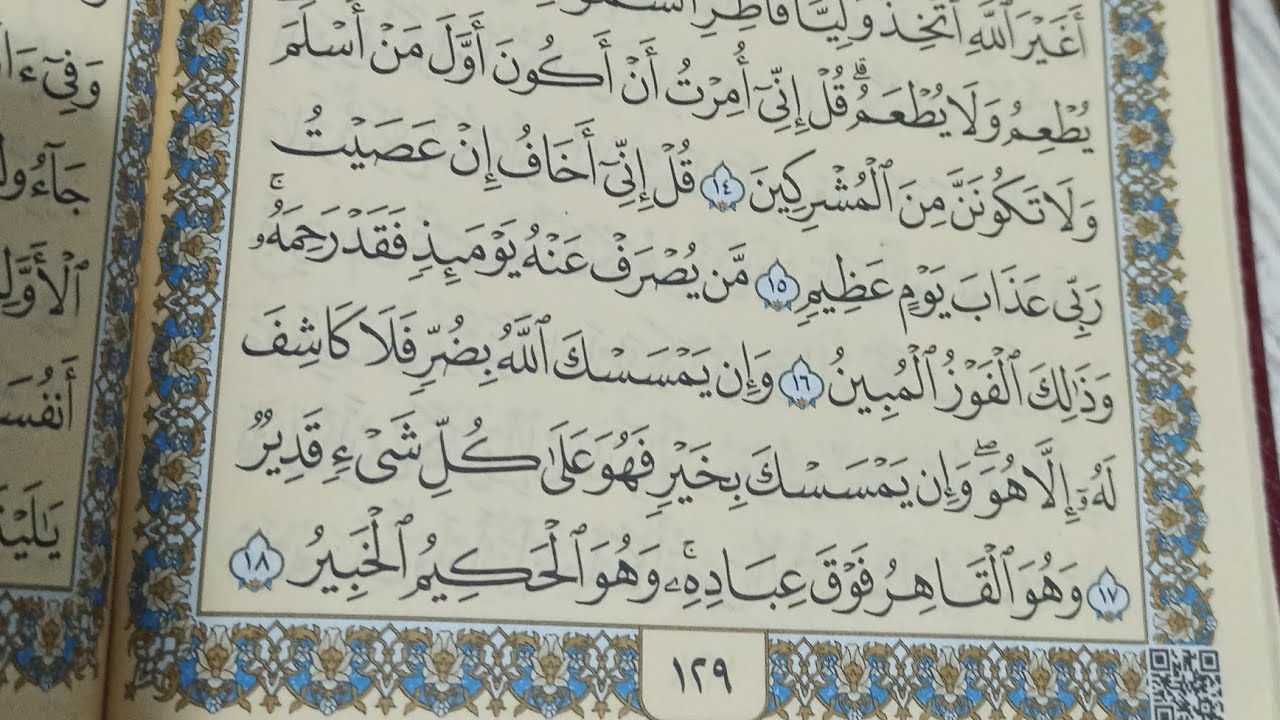 أَغَيْرَ ٱللَّهِ أَتَّخِذُ وَلِيًّا فَاطِرِ
يُطْعِمُ وَلَا يُطْعَمُ ۗ قُلْ إِنِّىٓ أُمِرْتُ أَنْ أَكُونَ أَوَّلَ مَنْ أَسْلَمَ
وَلَا تَكُونَنَّ مِنَ ٱلْمُشْرِكِينَ ١٤ قُلْ إِنِّىٓ أَخَافُ إِنْ عَصَيْتُ
رَبِّى عَذَابَ يَوْمٍ عَظِيمٍ ١٥ مَّن يُصْرَفْ عَنْهُ يَوْمَئِذٍ فَقَدْ رَحِمَهُۥ ۚ
وَذَٰلِكَ ٱلْفَوْزُ ٱلْمُبِينُ ١٦ وَإِن يَمْسَسْكَ ٱللَّهُ بِضُرٍّ فَلَا كَاشِفَ
لَهُۥٓ إِلَّا هُوَ ۖ وَإِن يَمْسَسْكَ بِخَيْرٍ فَهُوَ عَلَىٰ كُلِّ شَىْءٍ قَدِيرٌ
١٧ وَهُوَ ٱلْقَاهِرُ فَوْقَ عِبَادِهِۦ ۚ وَهُوَ ٱلْحَكِيمُ ٱلْخَبِيرُ ١٨
١٢٩
وَفِىٓ
جَآءُو
ٱلْأَوَّلِ
أَنفُسَ
يَٰلَيْتَ